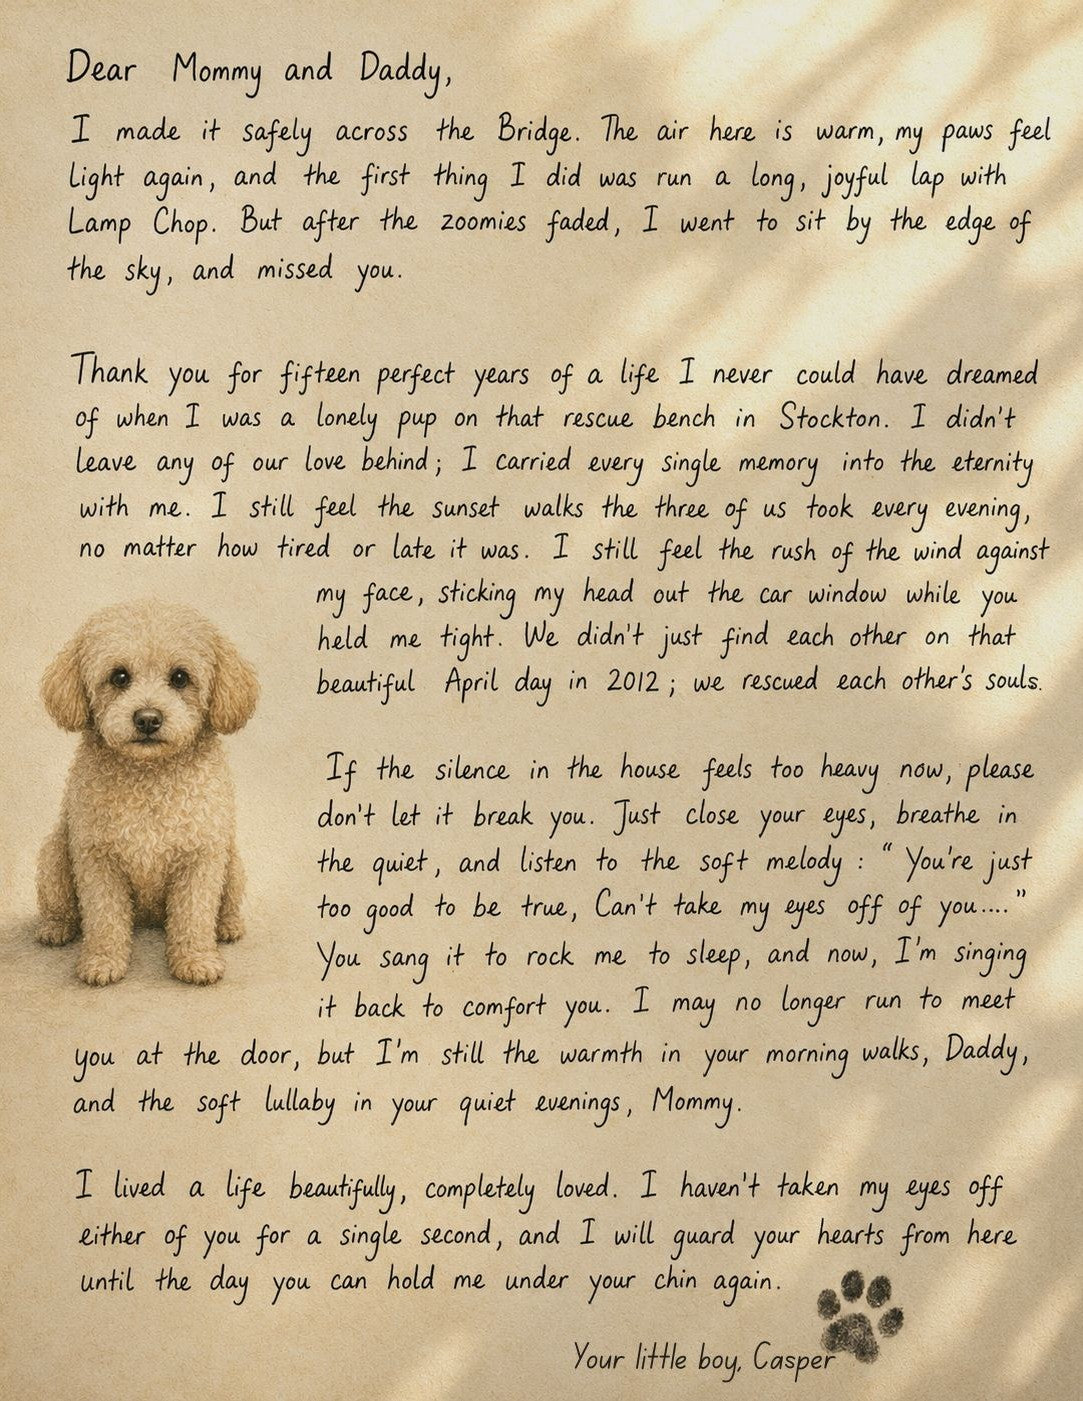 Dear Mommy and Daddy,
I made it safely across the Bridge. The air here is warm, my paws feel
light again, and the first thing I did was run a long, joyful lap with
Lamp Chop. But after the zoomies faded, I went to sit by the edge of
the sky, and missed you.
Thank you for fifteen perfect years of a life I never could have dreamed
of when I was a lonely pup on that rescue bench in Stockton. I didn't
leave any of our love behind; I carried every single memory into the eternity
with me. I still feel the sunset walks the three of us took every evening,
no matter how tired or late it was. I still feel the rush of the wind against
my face, sticking my head out the car window while you
held me tight. We didn't just find each other on that
beautiful April day in 2012; we rescued each other's souls.
If the silence in the house feels too heavy now, please
don't let it break you. Just close your eyes, breathe in
the quiet, and listen to the soft melody: "You're just
too good to be true, Can't take my eyes off of you...."
You sang it to rock me to sleep, and now, I'm singing
it back to comfort you. I may no longer run to meet
you at the door, but I'm still the warmth in your morning walks, Daddy,
and the soft lullaby in your quiet evenings, Mommy.
I lived a life beautifully, completely loved. I haven't taken my eyes off
either of you for a single second, and I will guard your hearts from here
until the day you can hold me under your chin again.
Your little boy, Casper